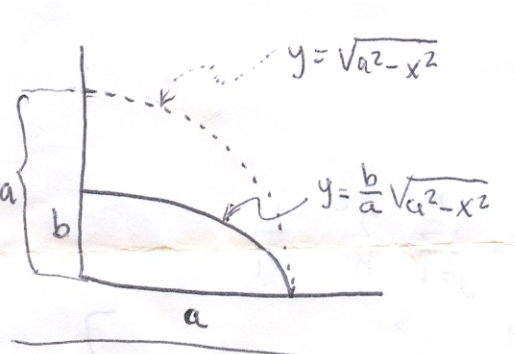 y = √a²-x²
a
y = b/a √a²-x²
b
a